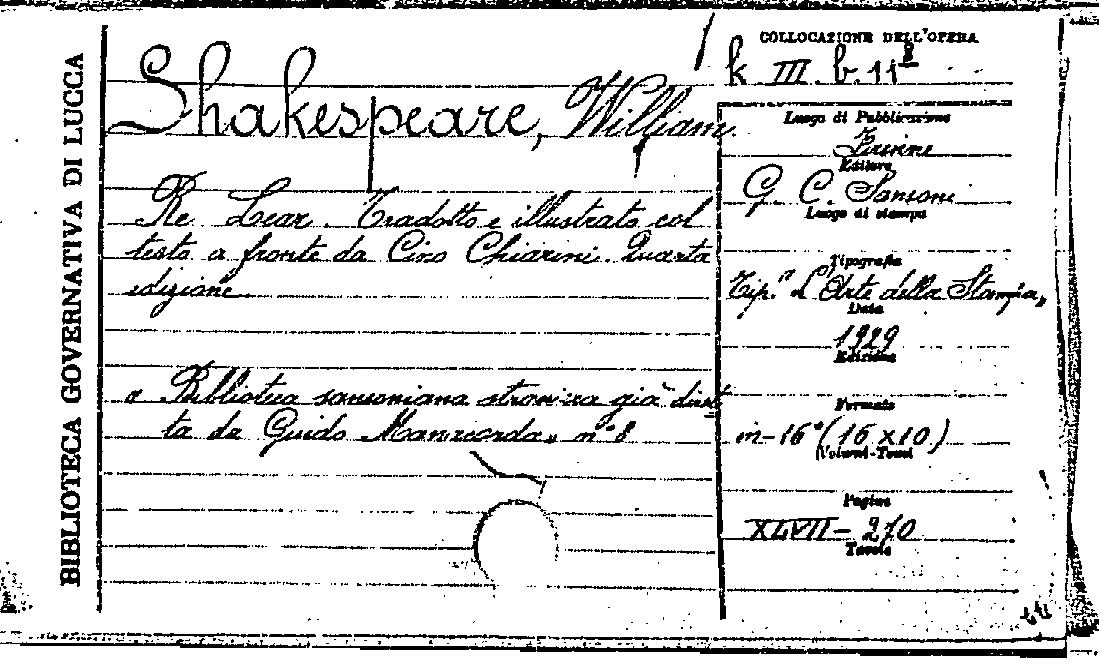 BIBLIOTECA GOVERNATIVA DI LUCCA
Shakespeare, William
Re Lear. Tradotto e illustrato col
testo a fronte da Cino Chiarini. Quarta
edizione
Biblioteca sansoniana straniera già diret
ta da Guido Manacorda, n° 8
COLLOCAZIONE DELL'OPERA
k III. b. 11
Luogo di Pubblicazione
Firenze
Editore
G. C. Sansoni
Luogo di stampa
Tipografia
Tip.ª "L'Arte della Stampa"
Data
1929
Edizione
Formato
in-16° (16 x 10)
Volumi-Tomi
Pagine
XLVII - 270
Tavole